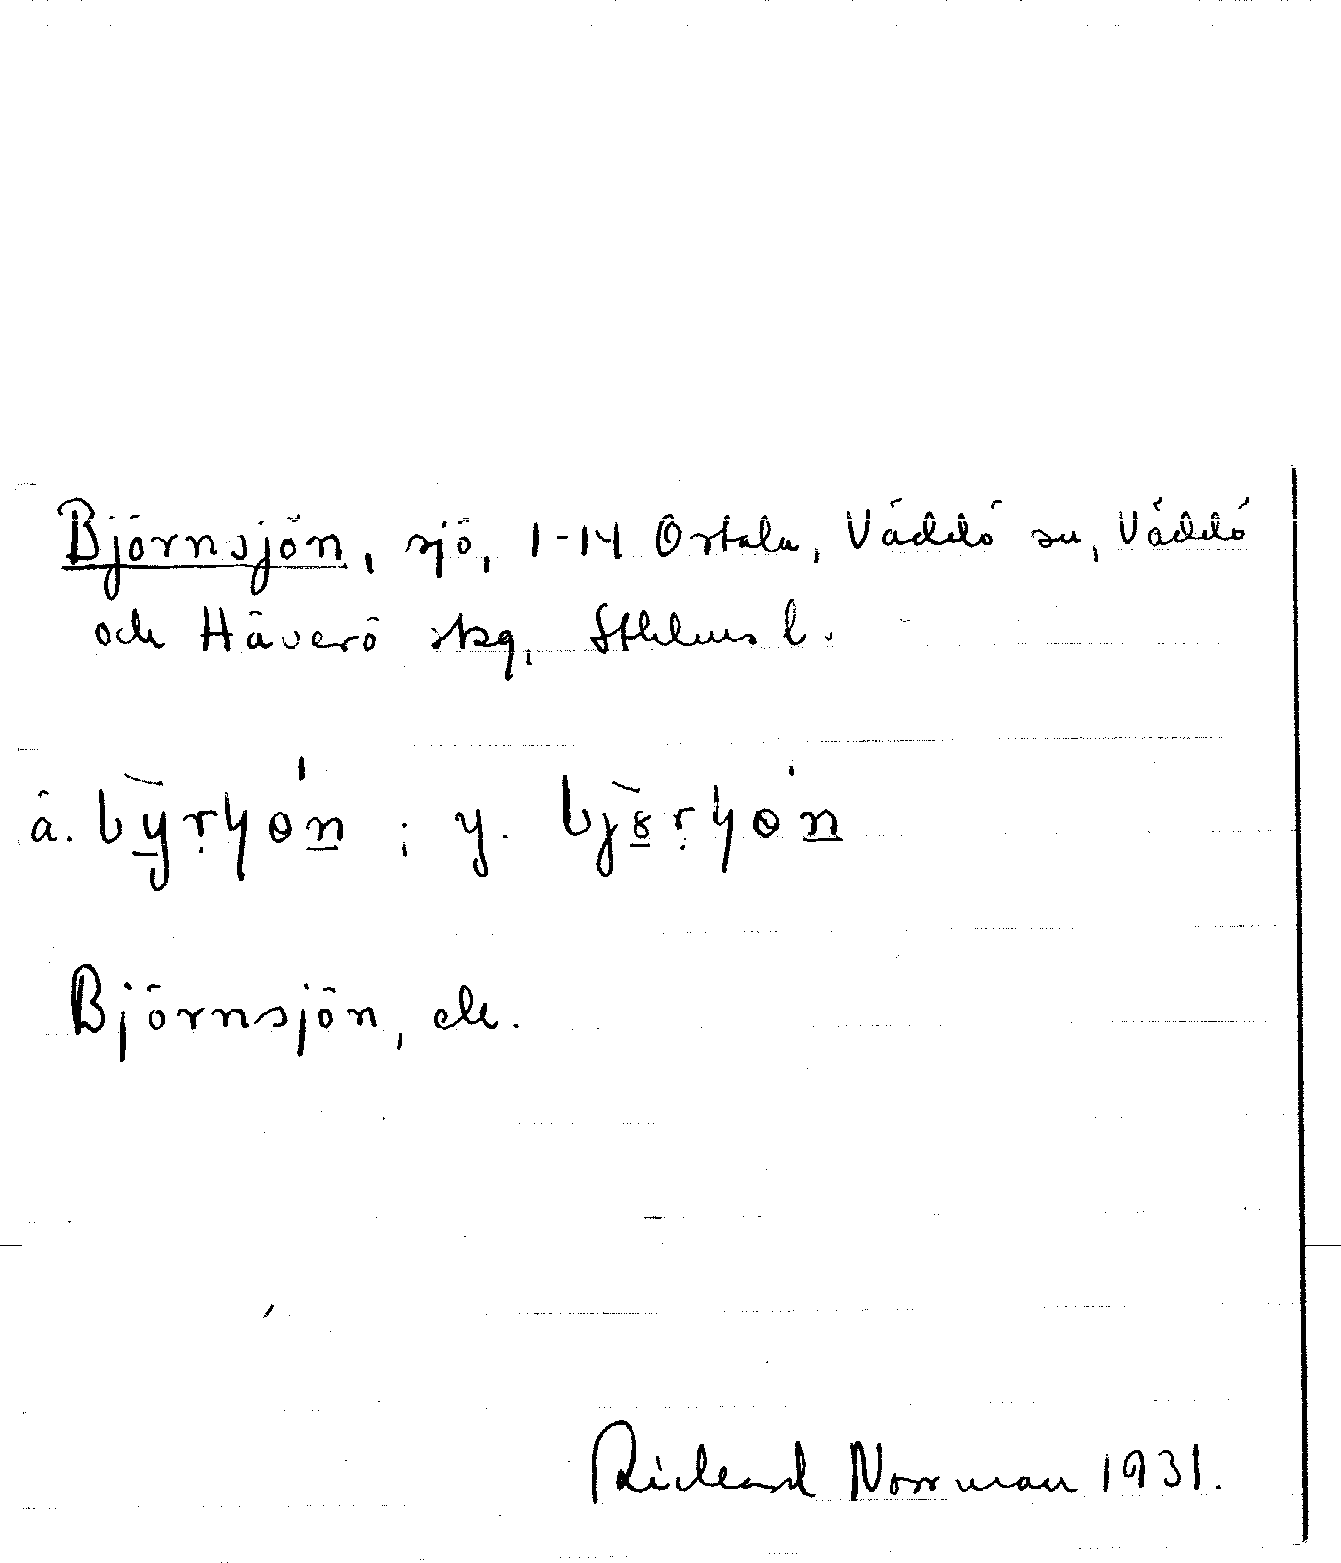 Björnsjön, sjö, 1-14 Ortala, Väddö sn, Väddö
och Häverö skg, Sthlms l.
ä. by̠rɥön̠ ; y. bjö̠rɥön̠
Björnsjön, ek.
Richard Norrman 1931.